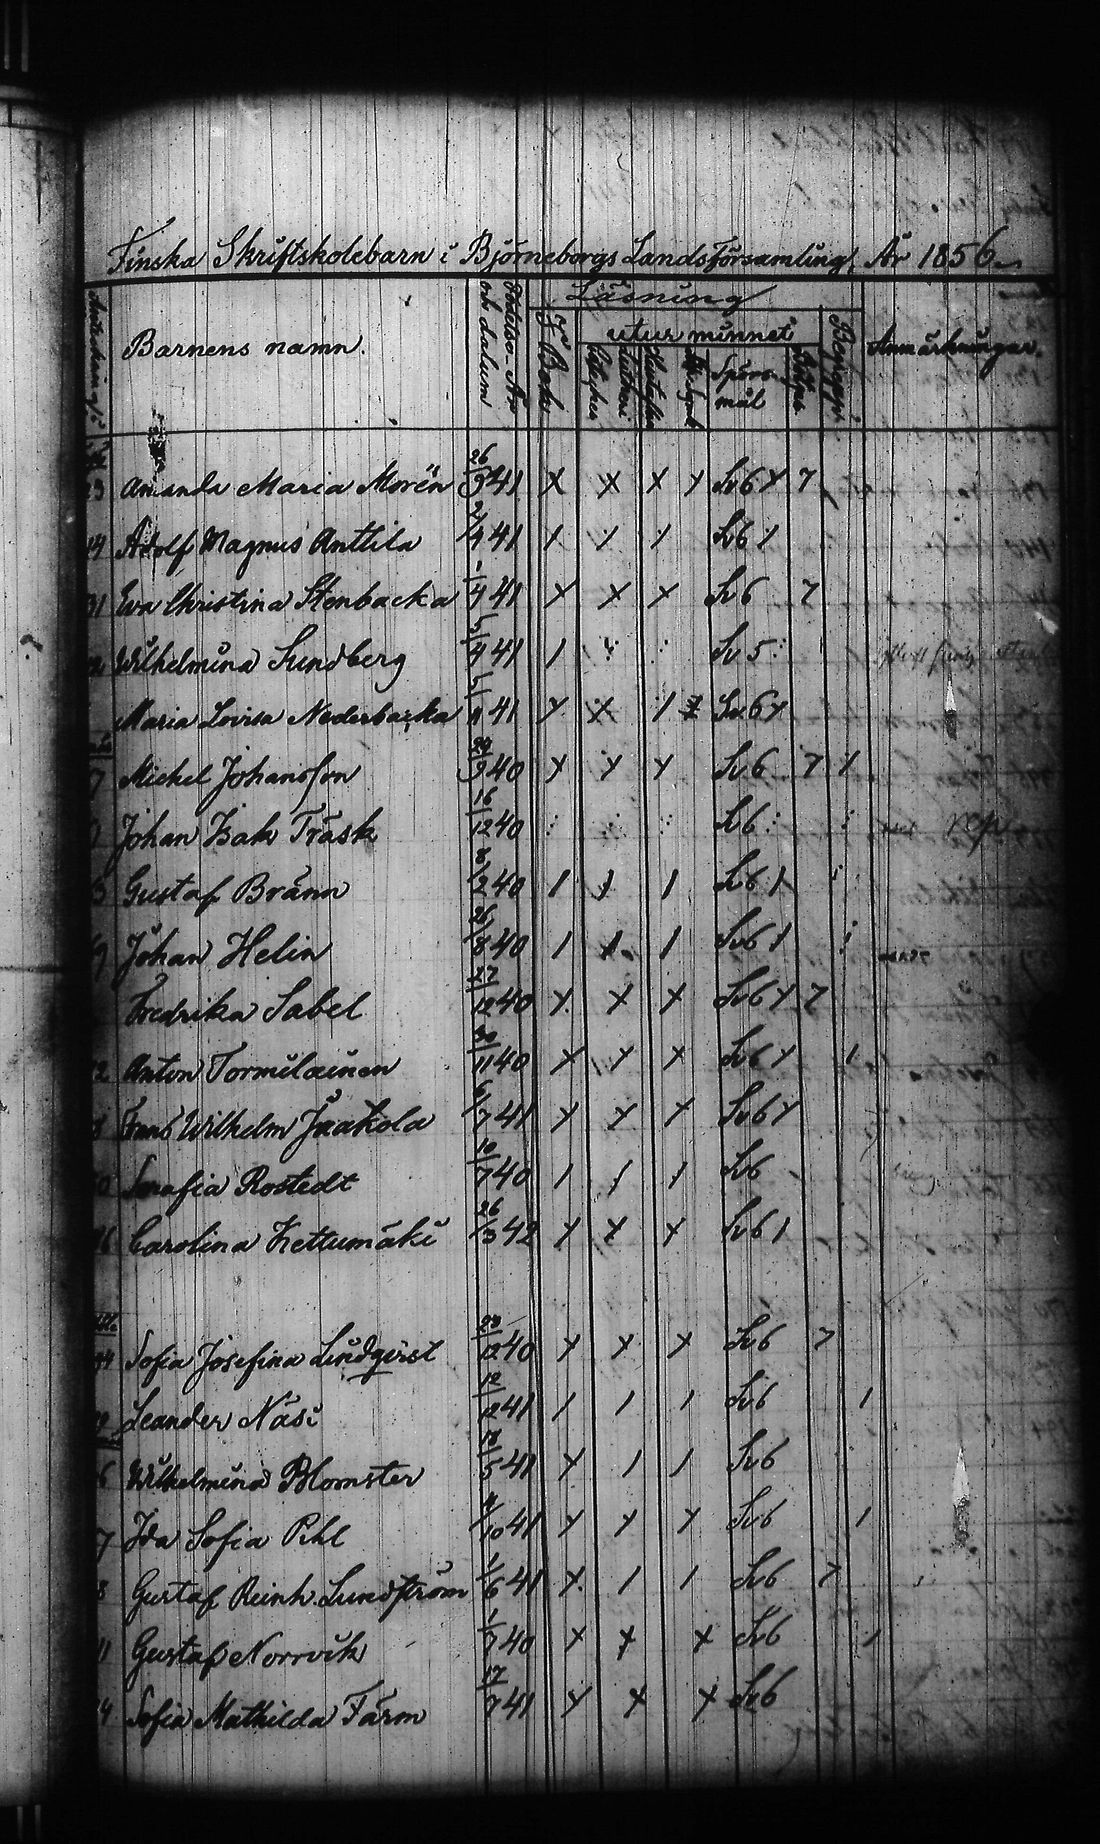 Finska Skriftskolebarn i Björneborgs Landsförsamling År 1856.
Barnens namn.
Födelse-År och datum
Läsning
I Bok
utur minnet
Spörsmål
Begrepp
Anmärkningar.
Amanda Maria Morén 26/9 41 x x x y Sv6 y 7
14 Adolf Magnus Anttila 2/4 41 / / / Sv6 /
31 Eva Christina Stenbacka 1/4 41 x x x Sv6 7
Wilhelmina Sundberg 5/4 41 / Sv5
Maria Lovisa Nederbacka 41 y x / Sv6 y
7 Michel Johansson 29/9 40 y y y Sv6 7 /
Johan Isak Träsk 16/12 40 Sv6 rep.
3 Gustaf Bränn 8/2 40 / / / Sv6 /
9 Johan Helin 26/8 40 / / / Sv6 /
Fredrika Sabel 27/12 40 y x x Sv6 y 7
2 Anton Tormilainen 30/11 40 y y x Sv6 y /
Frans Wilhelm Jaakola 6/7 41 y y y Sv6 y
Serafia Rostedt 10/7 40 / / / Sv6
6 Carolina Kettumäki 26/3 42 y x x Sv6 /
Sofia Josefina Lindqvist 23/12 40 y x x Sv6 7
Leander Näsi 12/12 41 / / / Sv6 /
6 Wilhelmina Blomster 18/5 41 y / / Sv6
7 Ida Sofia Pihl 4/10 41 y y y Sv6 /
8 Gustaf Reinh. Lundström 1/6 41 x / / Sv6 7
11 Gustaf Norrvik 1/7 40 x x x Sv6 /
4 Sofia Mathilda Färm 17/7 41 y x x Sv6